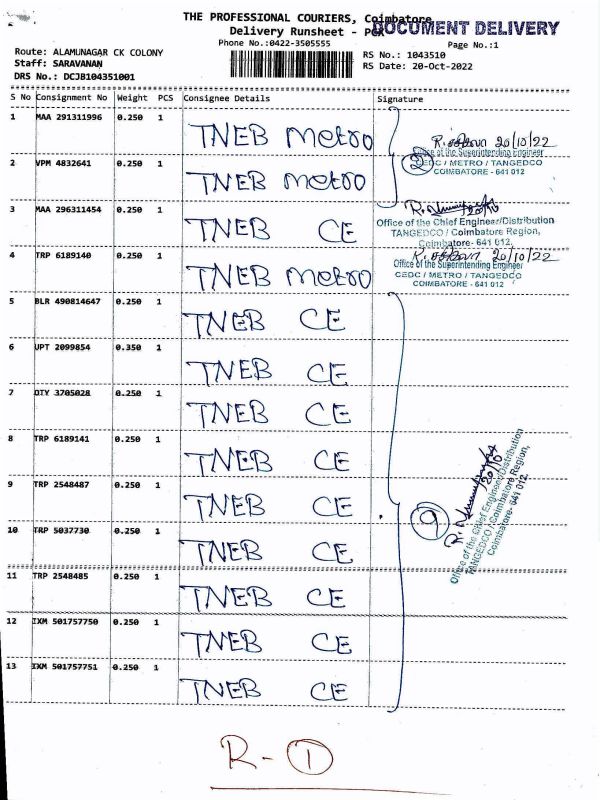 THE PROFESSIONAL COURIERS, Coimbatore
DOCUMENT DELIVERY
Delivery Runsheet -
Phone No.:0422-3505555
Page No.:1
Route: ALAMUNAGAR CK COLONY
RS No.: 1043510
Staff: SARAVANAN
RS Date: 20-Oct-2022
DRS No.: DCJB104351001
S No Consignment No Weight PCS Consignee Details Signature
1 MAA 291311996 0.250 1 TNEB Metro
R. 20/10/22
Office of the Superintending Engineer
CEDC / METRO / TANGEDCO
COIMBATORE - 641 012
2
2 VPM 4832641 0.250 1 TNEB Metro
3 MAA 296311454 0.250 1 TNEB CE
20/10
Office of the Chief Engineer/Distribution
TANGEDCO / Coimbatore Region,
Coimbatore- 641 012.
4 TRP 6189140 0.250 1 TNEB Metro
R. 20/10/22
Office of the Superintending Engineer
CEDC / METRO / TANGEDCO
COIMBATORE - 641 012
5 BLR 490814647 0.250 1 TNEB CE
6 UPT 2099854 0.350 1 TNEB CE
7 OTY 3705028 0.250 1 TNEB CE
8 TRP 6189141 0.250 1 TNEB CE
9 TRP 2548487 0.250 1 TNEB CE
9
20/10
Office of the Chief Engineer/Distribution
TANGEDCO / Coimbatore Region,
Coimbatore- 641 012.
10 TRP 5037730 0.250 1 TNEB CE
11 TRP 2548485 0.250 1 TNEB CE
12 IXM 501757750 0.250 1 TNEB CE
13 IXM 501757751 0.250 1 TNEB CE
R - 1